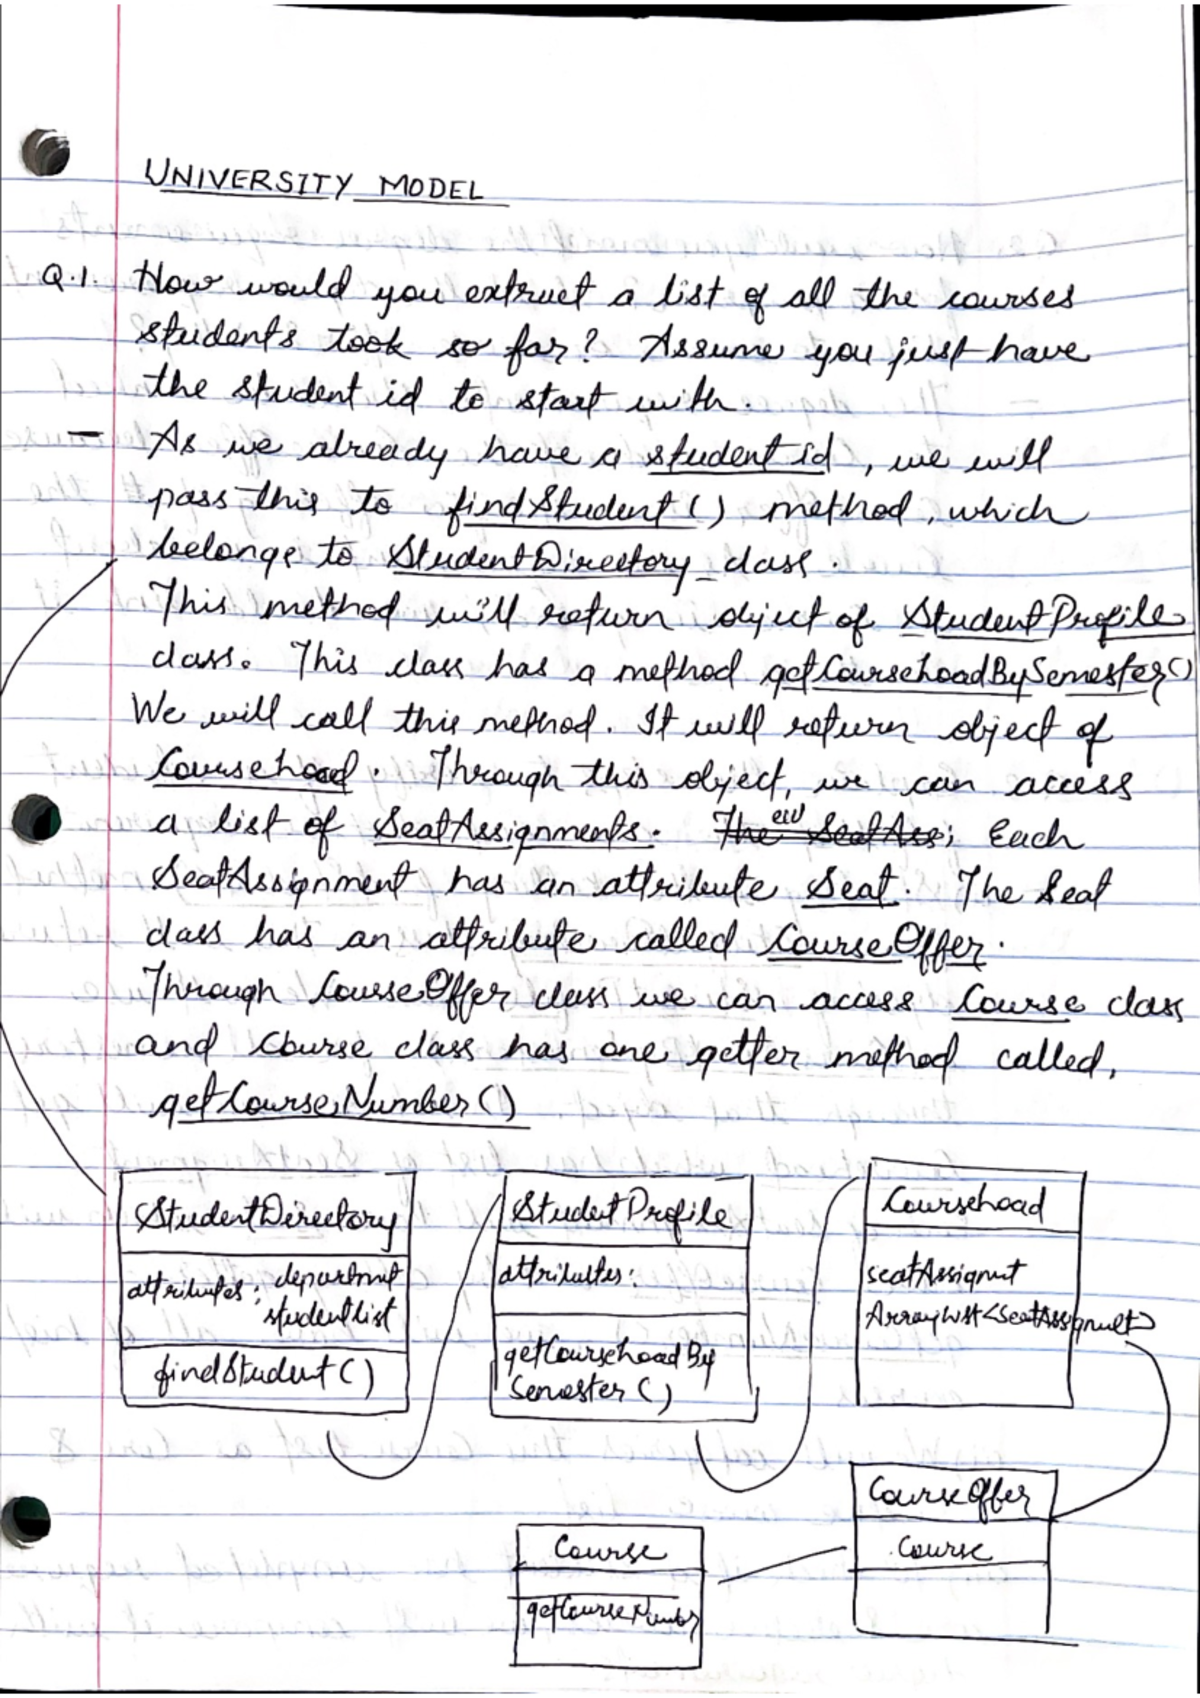 UNIVERSITY MODEL
Q.1. How would you extract a list of all the courses
students took so far? Assume you just have
the student id to start with.
— As we already have a student id, we will
pass this to findStudent() method, which
belongs to StudentDirectory class.
This method will return object of StudentProfile
class. This class has a method getCourseLoadBySemester()
We will call this method. It will return object of
CourseLoad. Through this object, we can access
a list of SeatAssignments. The SeatAss; Each
SeatAssignment has an attribute Seat. The Seat
class has an attribute called CourseOffer.
Through CourseOffer class we can access Course class
and Course class has one getter method called,
getCourseNumber()
StudentDirectory
attributes: department
studentlist
findStudent()
StudentProfile
attributes:
getCourseLoadBy
Semester()
CourseLoad
seatAssignmt
ArrayList<SeatAssignmet>
CourseOffer
Course
Course
getCourseNumber